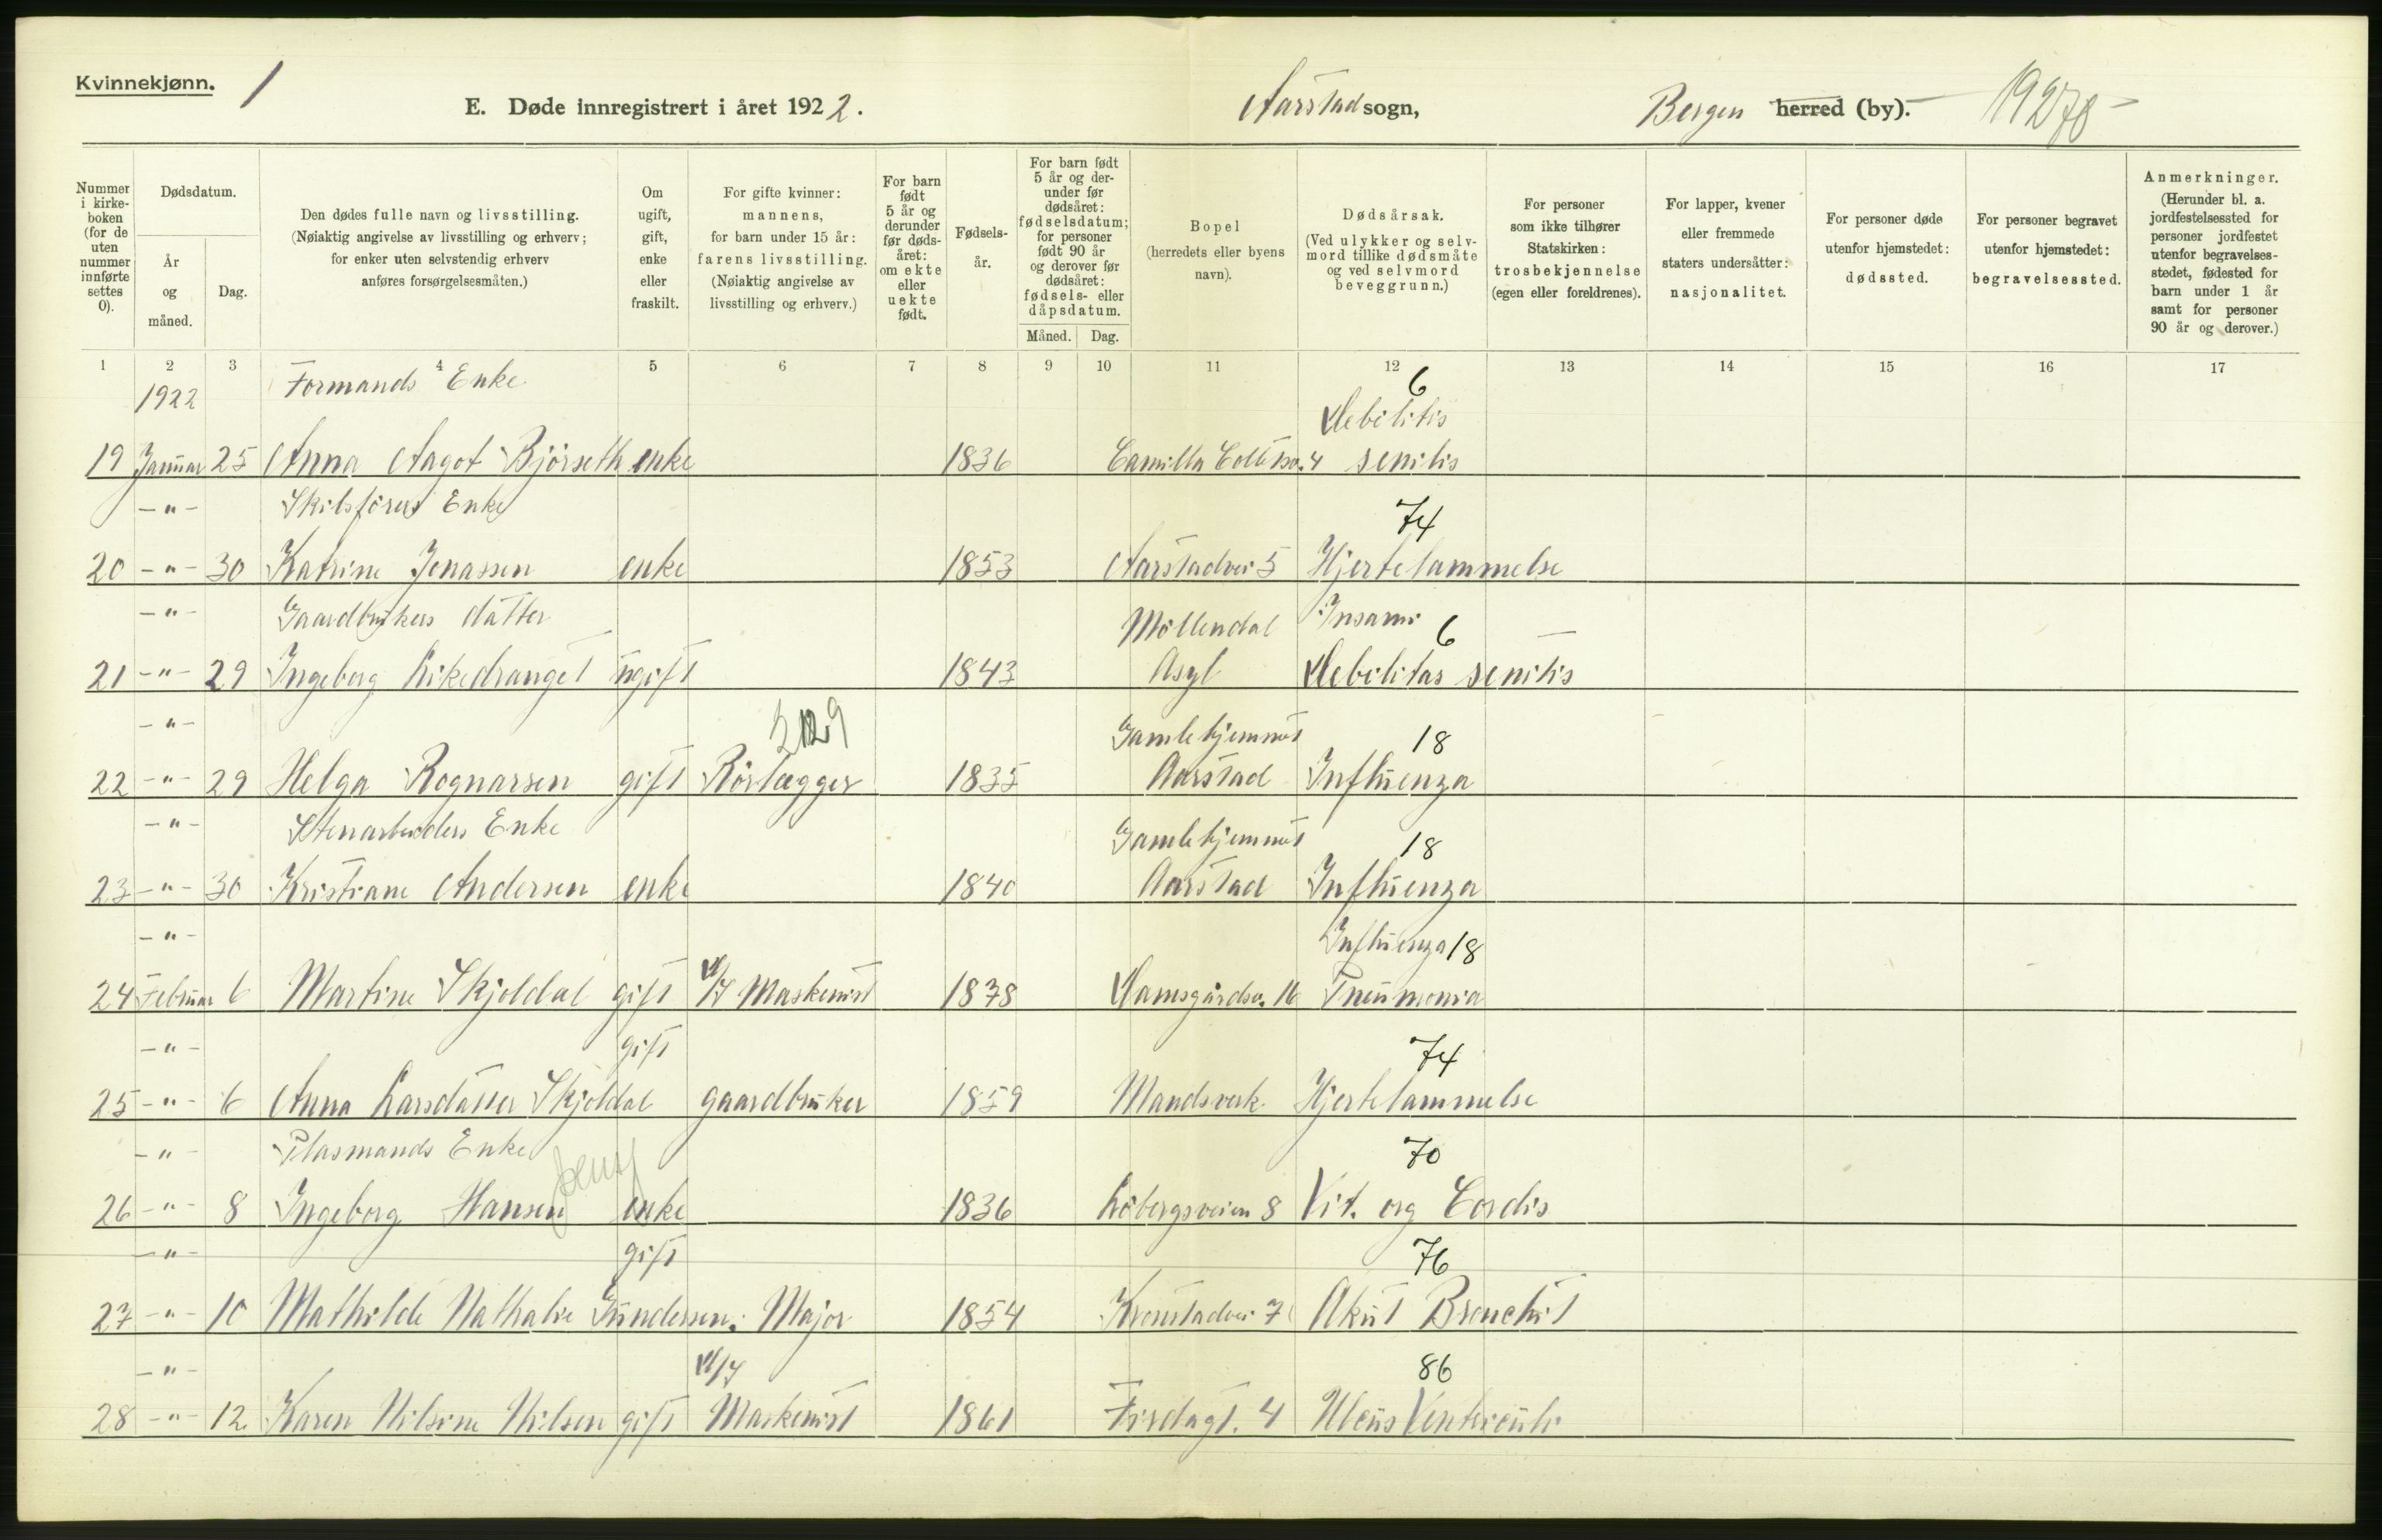 Kvinnekjønn. 1
E. Døde innregistrert i året 1922. Aarstad sogn, Bergen herred (by).
Nummer i kirkeboken (for de uten nummer innførte settes 0).
Dødsdatum.
År og måned.
Dag.
Den dødes fulle navn og livsstilling. (Nøiaktig angivelse av livsstilling og erhverv; for enker uten selvstendig erhverv anføres forsørgelsesmåten.)
Om ugift, gift, enke eller fraskilt.
For gifte kvinner: mannens, for barn under 15 år: farens livsstilling. (Nøiaktig angivelse av livsstilling og erhverv.)
For barn født 5 år og derunder før dødsåret: om ekte eller uekte født.
Fødselsår.
For barn født 5 år og derunder før dødsåret: fødselsdatum; for personer født 90 år og derover før dødsåret: fødsels- eller dåpsdatum.
Måned. Dag.
Bopel (herredets eller byens navn).
Dødsårsak. (Ved ulykker og selvmord tillike dødsmåte og ved selvmord beveggrunn.)
For personer som ikke tilhører Statskirken: trosbekjennelse (egen eller foreldrenes).
For lapper, kvener eller fremmede staters undersåtter: nasjonalitet.
For personer døde utenfor hjemstedet: dødssted.
For personer begravet utenfor hjemstedet: begravelsessted.
Anmerkninger. (Herunder bl. a. jordfestelsessted for personer jordfestet utenfor begravelsesstedet, fødested for barn under 1 år samt for personer 90 år og derover.)
1 2 3 4 5 6 7 8 9 10 11 12 13 14 15 16 17
1922 Formands Enke 6
Debilitis
19 Januar 25 Anna Aagot Björseth enke 1836 Camilla 4 senilis
-"- Enke 74
20 -"- 30 Katrine Jonassen enke 1853 Aarstadvei 5 Hjertelammelse
-"- Gaardbrukers datter Möllendal 6
21 -"- 29 Ingeborg ugift 1843 Asyl Debilitas senilis
-"- Gamlehjemmet 18
22 -"- 29 Helga Rognarsen gift Rörlægger 1835 Aarstad Influenza
-"- Stenarbeiders Enke Gamlehjemmet 18
23 -"- 30 Kristiane Andersen enke 1840 Aarstad Influenza
-"- Influenza 18
24 Februar 6 Martine Skjoldal gift Maskinist 1838 Damsgårdsv. 16 Pneumonia
-"- gift 74
25 -"- 6 Anna Larsdatter Skjoldal gaardbruker 1859 Mandsverk Hjertelammelse
-"- Plasmands Enke 70
26 -"- 8 Ingeborg Hansen enke 1836 Löbergsveien 8 Vit. org Cordis
-"- gift 76
27 -"- 10 Mathilde Nathalie Gundersen. Major 1854 Kronstadvei 7 Akut Bronchit
-"- 86
28 -"- 12 Karen Nilsine Nilsen gift Maskinist 1861 Firdagt. 4 Ulcus Ventriculi